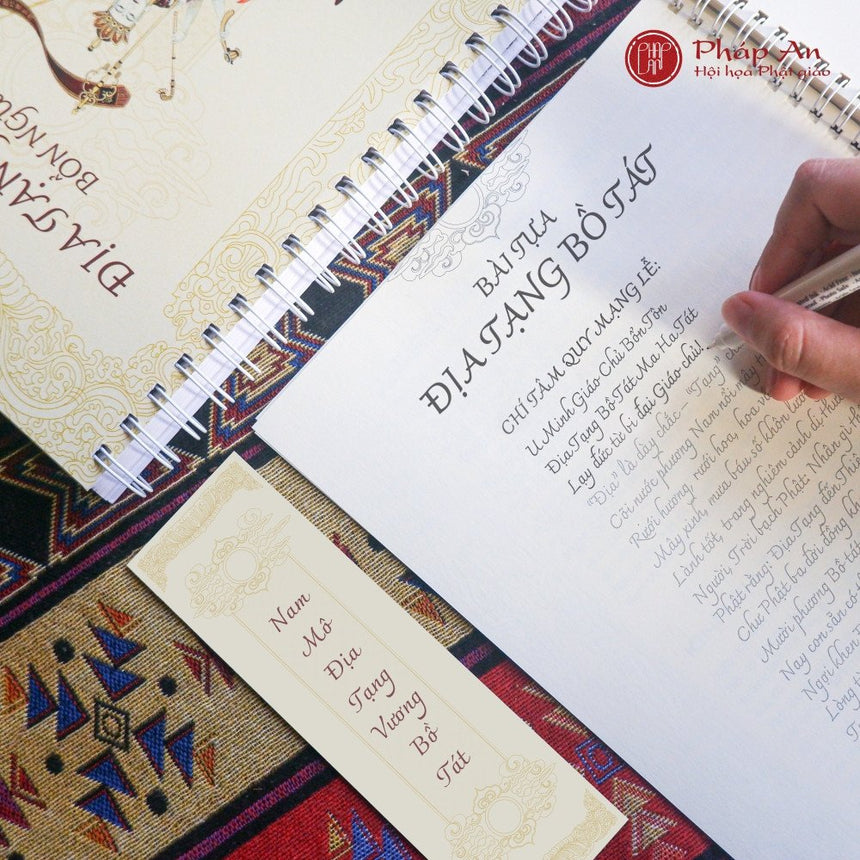 PHÁP
AN
Pháp An
Hội họa Phật giáo
ĐỊA TẠN
BỔN NGU
BÀI TỰA
ĐỊA TẠNG BỒ TÁT
CHÍ TÂM QUY MẠNG LỄ:
U Minh Giáo Chủ Bổn Tôn
Địa Tạng Bồ Tát Ma Ha Tát
Lạy đức từ bi đại Giáo chủ!
"Địa" là dày chắc - "Tạng" ch
Cõi nước phương Nam nổi mây th
Rưới hương, rưới hoa, hoa v
Mây xinh, mưa báu số khôn lườ
Lành tốt, trang nghiêm cảnh dị thườ
Người, Trời bạch Phật: Nhân gì th
Phật rằng: Địa Tạng đến Thi
Chư Phật ba đời đồng kh
Mười phương Bồ-tát
Nay con sẵn có
Ngợi khen
Lòng t
Nam
Mô
Địa
Tạng
Vương
Bồ
Tát